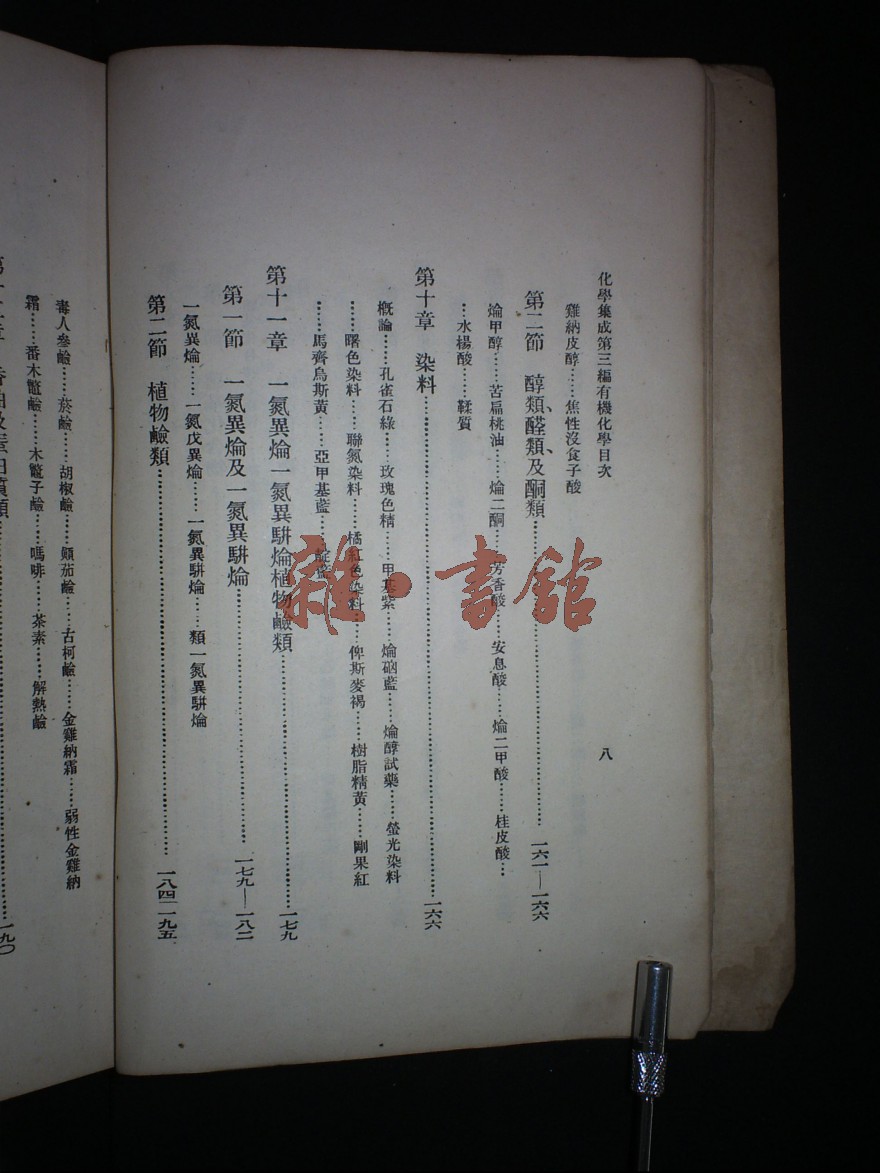 化學集成第三編有機化學目次
八
雞納皮醇……焦性沒食子酸
第二節　醇類、醛類、及酮類……一六一—一六六
焀甲醇……苦扁桃油……焀二酮……芳香酸……安息酸……焀二甲酸……桂皮酸…
…水楊酸……鞣質
第十章　染料……一六六
概論……孔雀石綠……玫瑰色精……甲基紫……焀硇藍……焀醇試藥……螢光染料
……曙色染料……聯氮染料……橘紅色染料……俾斯麥褐……樹脂精黃……剛果紅
……馬齊烏斯黃……亞甲基藍……靛藍
第十一章　一氮異焀一氮異駢焀植物鹼類……一七九
第一節　一氮異焀及一氮異駢焀……一七九—一八二
一氮異焀……一氮戊異焀……一氮異駢焀……類一氮異駢焀
第二節　植物鹼類……一八四—一九五
毒人參鹼……菸鹼……胡椒鹼……顛茄鹼……古柯鹼……金雞納霜……弱性金雞納
霜……番木鼈鹼……木鼈子鹼……嗎啡……茶素……解熱鹼
一九〇
雜·書館